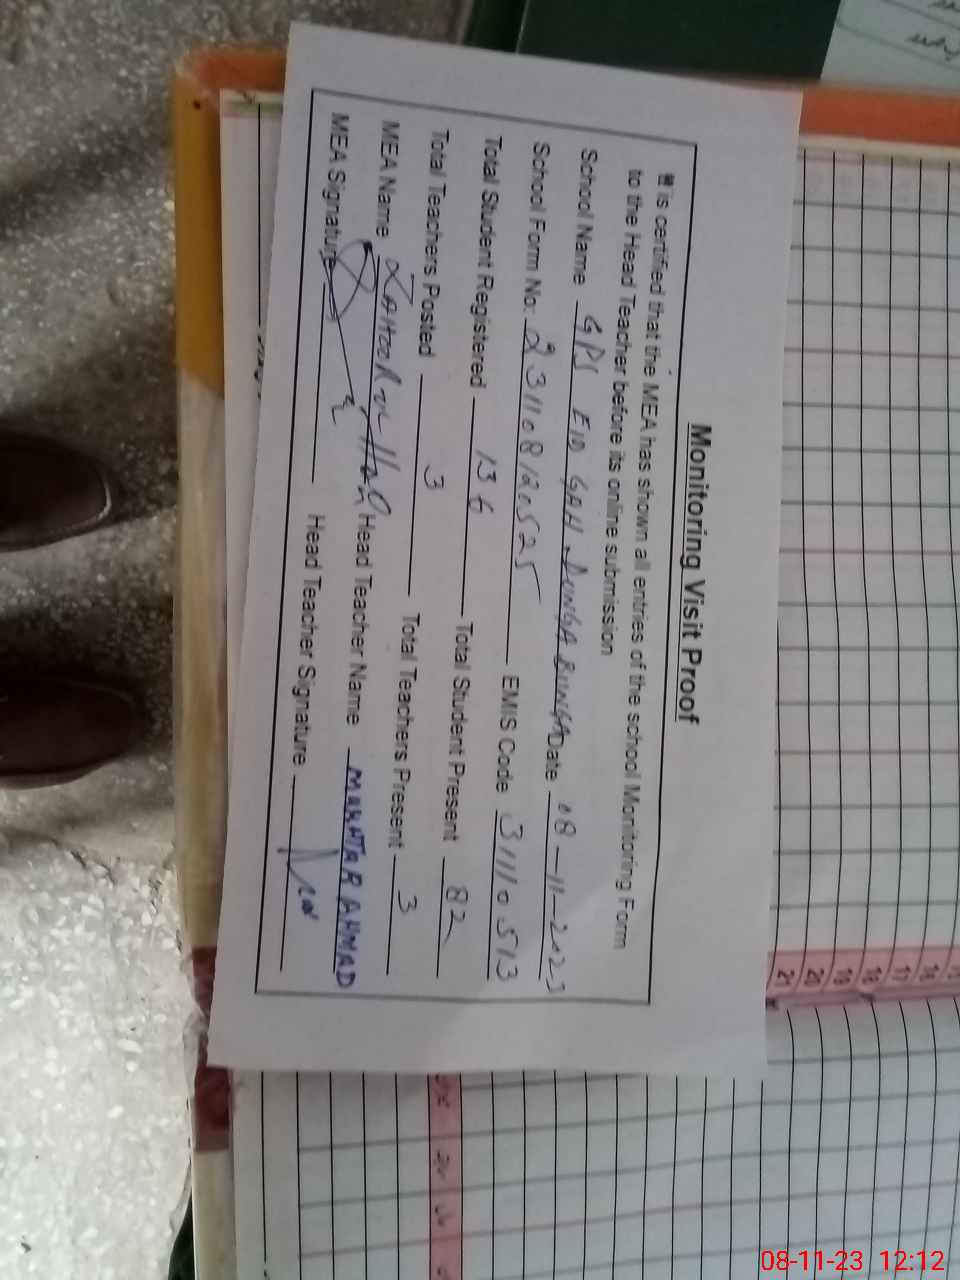 Monitoring Visit Proof
It is certified that the MEA has shown all entries of the school Monitoring Form
to the Head Teacher before its online submission
School Name GPS EID GAH DUNGA BUNGA Date 08-11-2023
School Form No: 231108120525 EMIS Code 31110513
Total Student Registered 136 Total Student Present 82
Total Teachers Posted 3 Total Teachers Present 3
MEA Name ZAHOOR UL HAQ Head Teacher Name MUKHTAR AHMAD
MEA Signature Head Teacher Signature
21
20
19
18
17
16
08-11-23 12:12